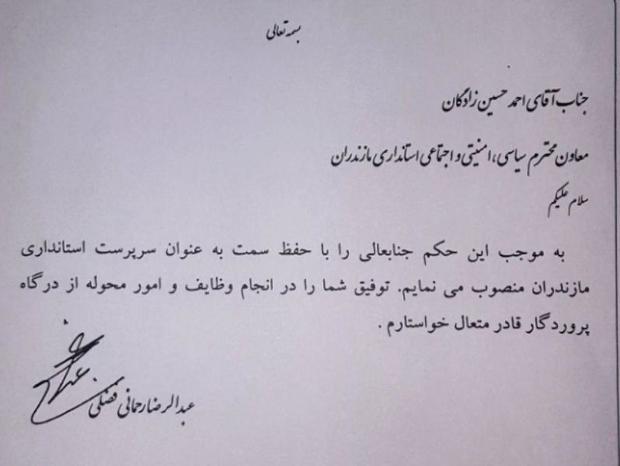 بسمه تعالی
جناب آقای احمد حسین زادگان
معاون محترم سیاسی، امنیتی و اجتماعی استانداری مازندران
سلام علیکم
به موجب این حکم جنابعالی را با حفظ سمت به عنوان سرپرست استانداری
مازندران منصوب می نمایم. توفیق شما را در انجام وظایف و امور محوله از درگاه
پروردگار قادر متعال خواستارم .
عبدالرضا رحمانی فضلی